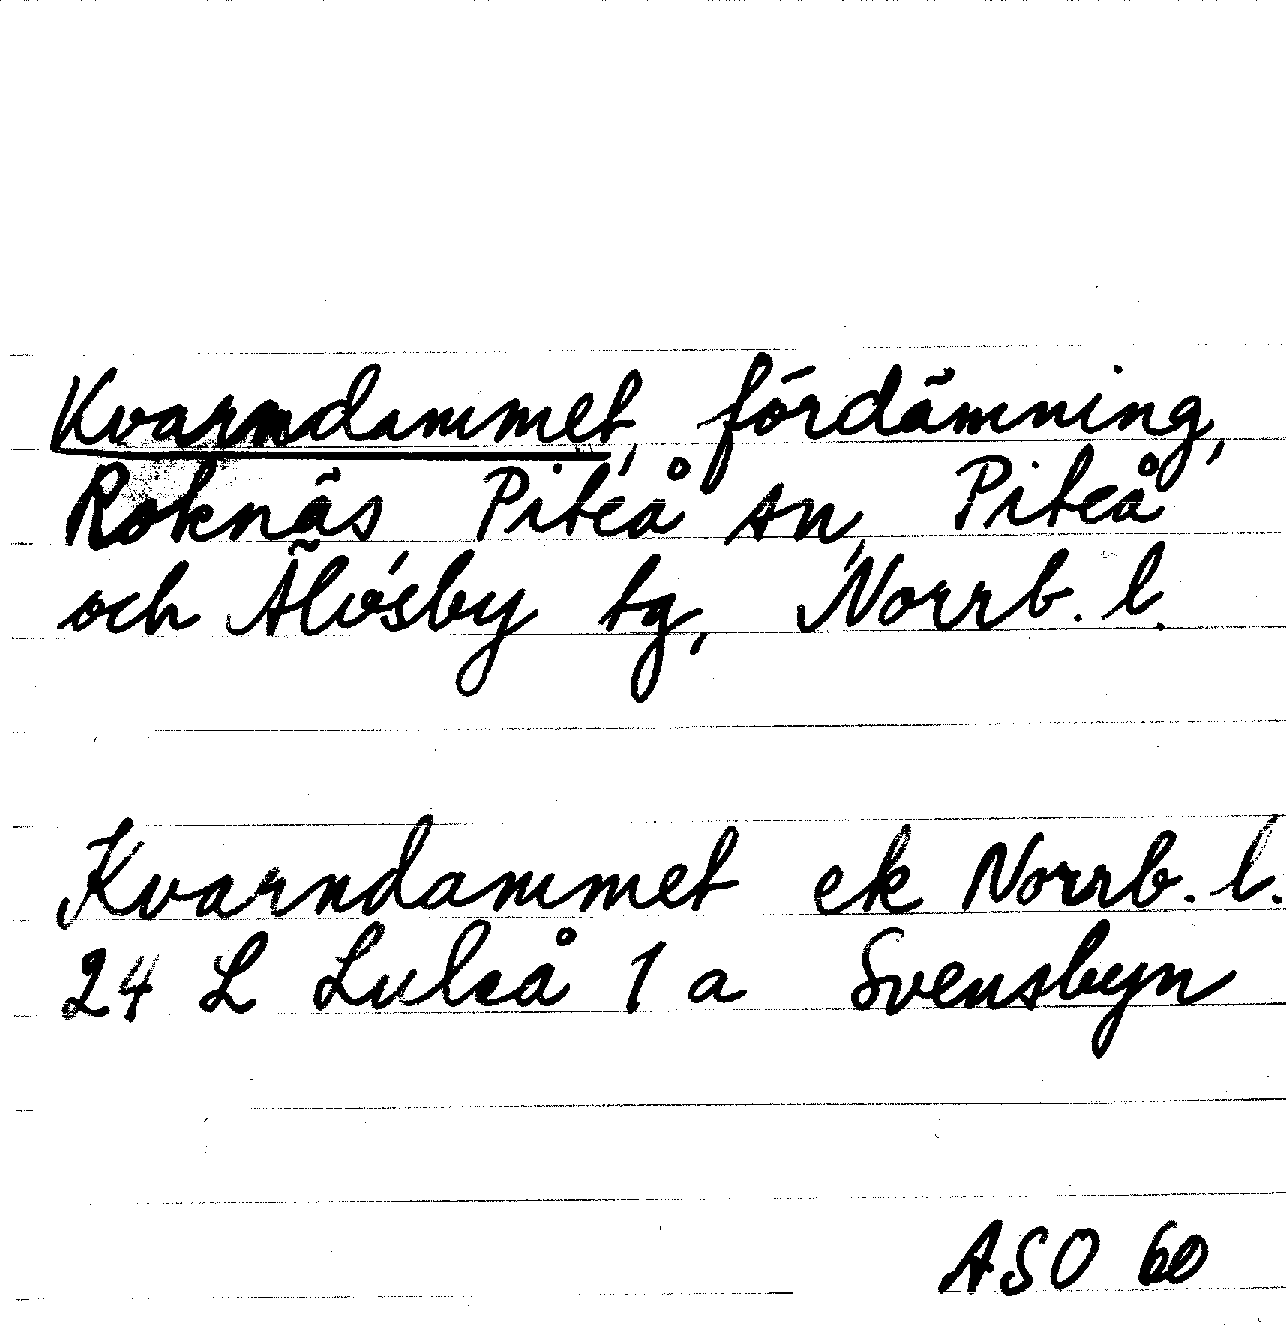 Kvarndammet, fördämning,
Roknäs Piteå sn, Piteå
och Älvsby tg, Norrb. l.
Kvarndammet ek Norrb. l.
24 L Luleå 1 a Svensbyn
ASO 60